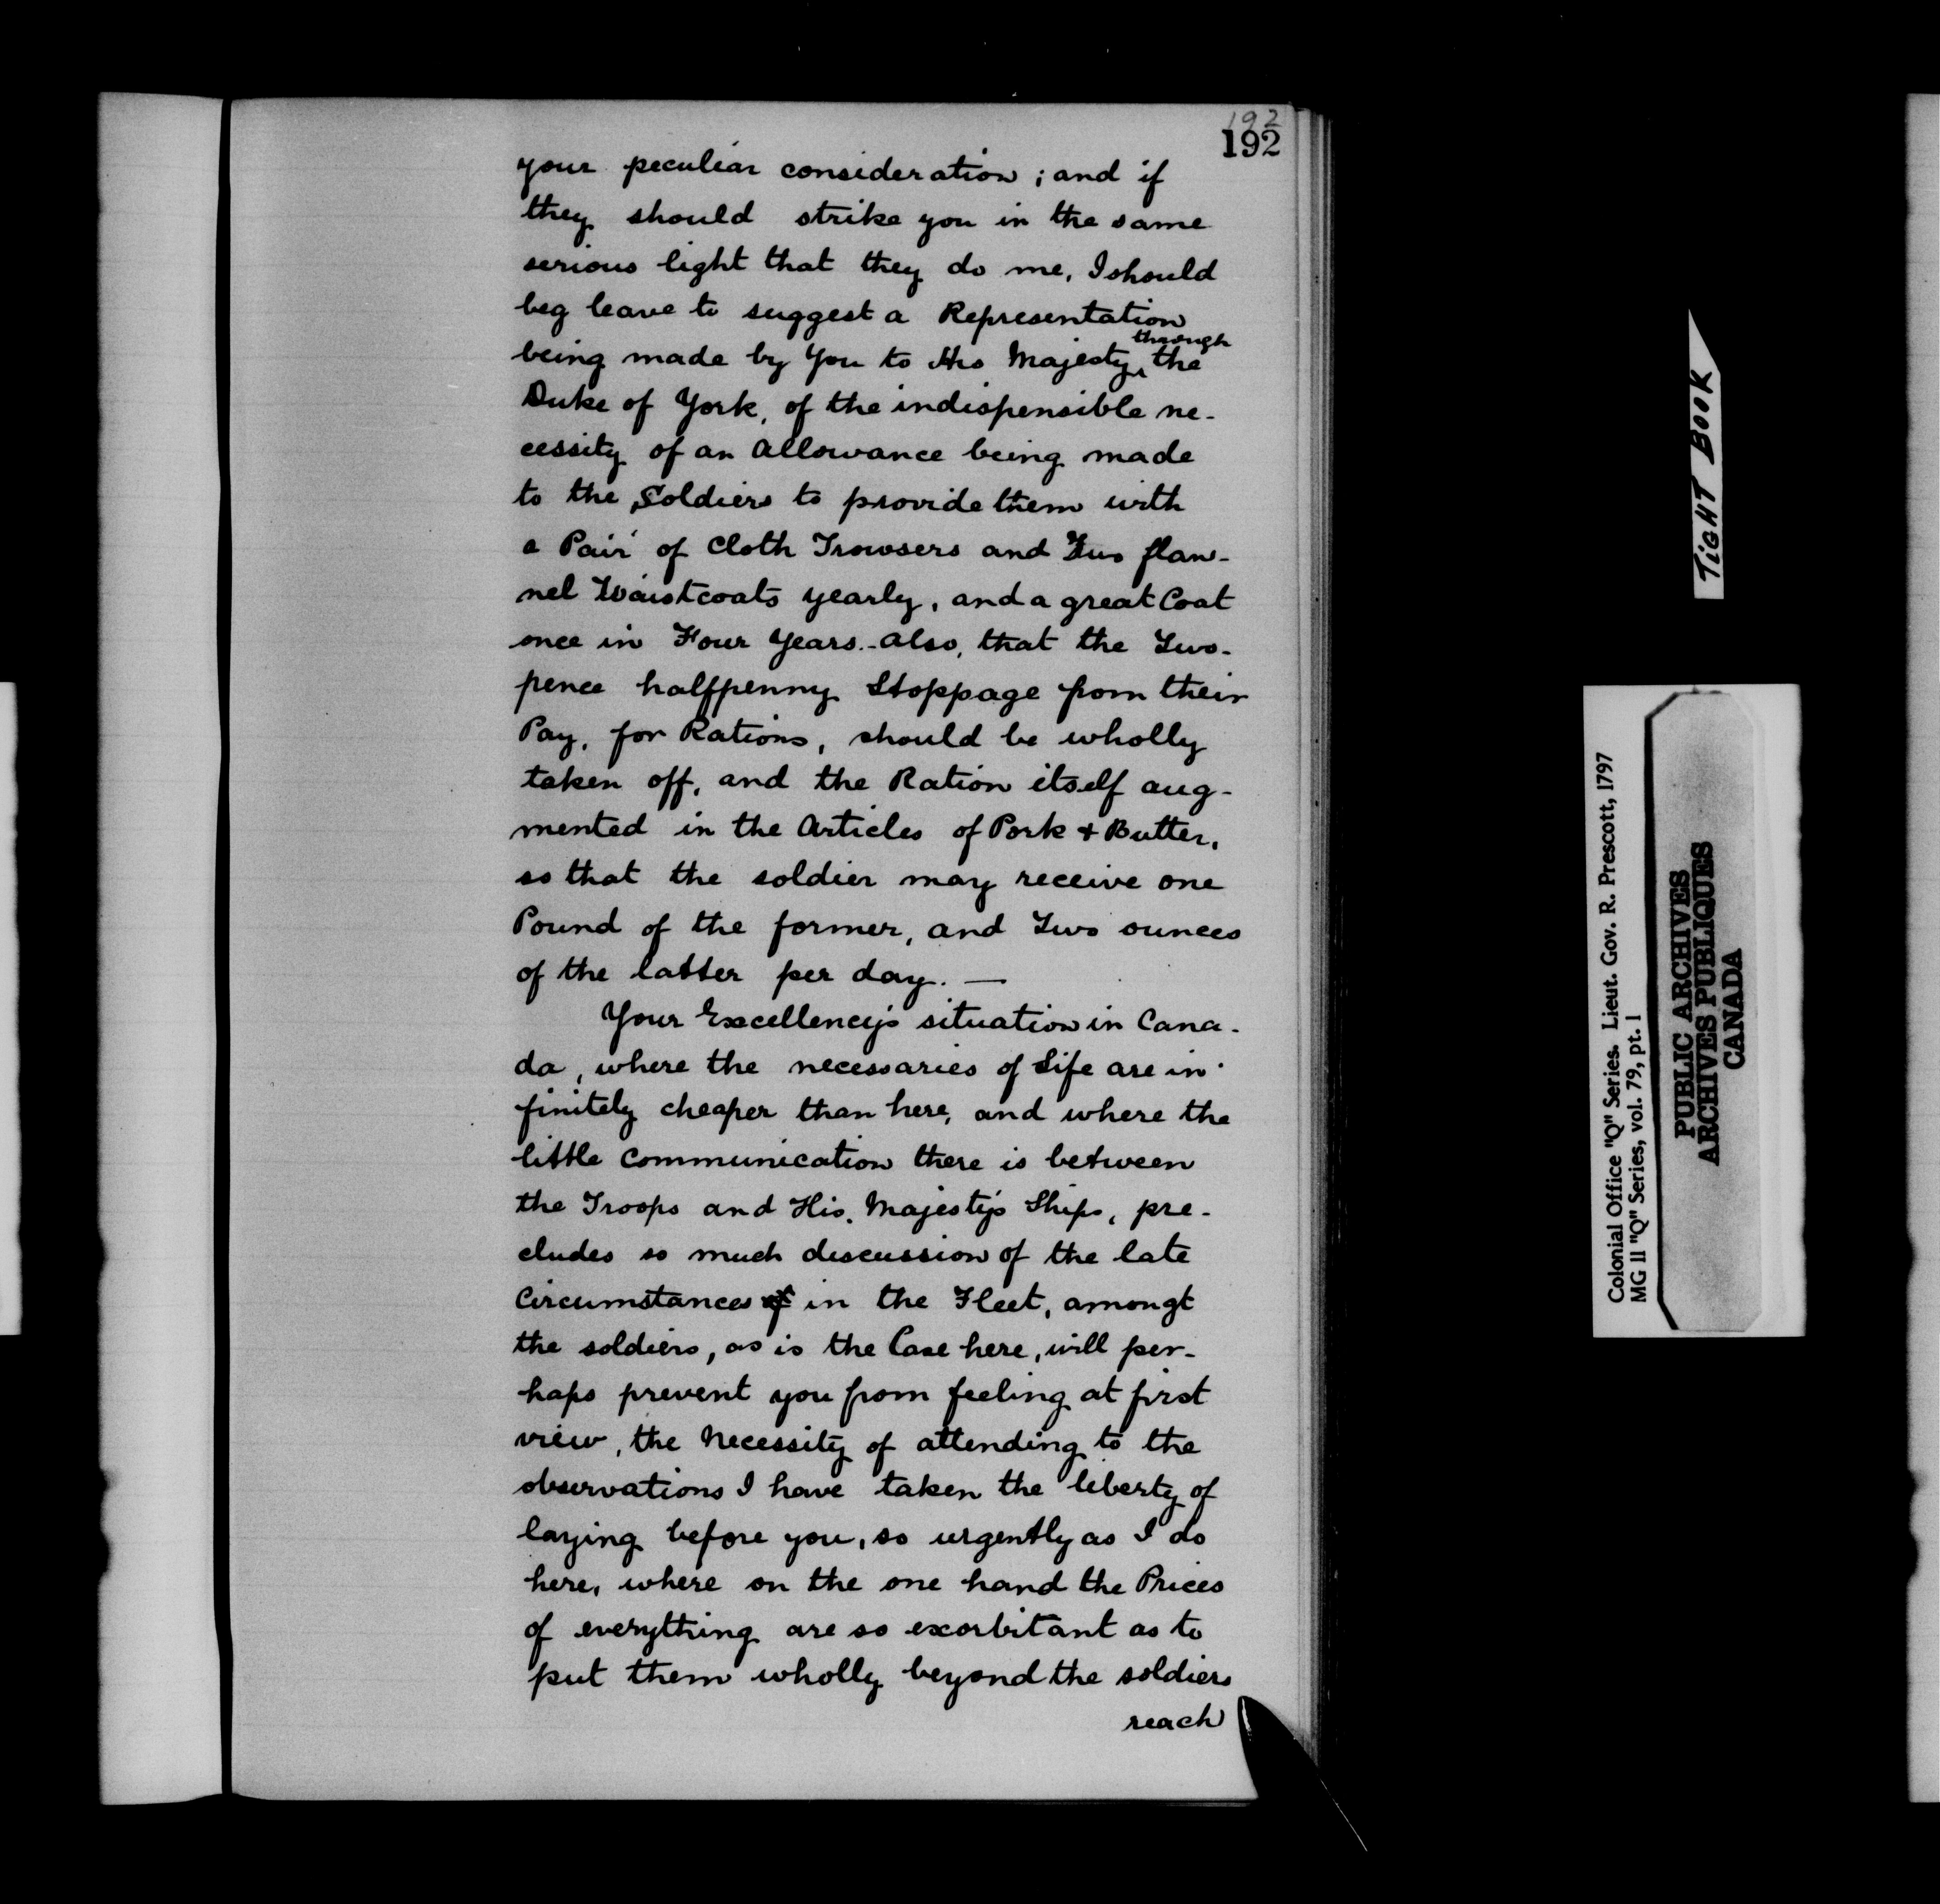 192
192
your peculiar consideration; and if
they should strike you in the same
serious light that they do me, I should
beg leave to suggest a Representation
being made by You to His Majesty through the
Duke of York, of the indispensible ne-
cessity of an Allowance being made
to the Soldiers to provide them with
a Pair of Cloth Trowsers and Two flan-
nel Waistcoats yearly, and a great Coat
once in Four Years. - Also, that the Two-
pence halfpenny Stoppage from their
Pay, for Rations, should be wholly
taken off, and the Ration itself aug-
mented in the Articles of Pork & Butter,
so that the soldier may receive one
Pound of the former, and Two ounces
of the latter per day. —
Your Excellency's situation in Cana-
da, where the necessaries of Life are in-
finitely cheaper than here, and where the
little communication there is between
the Troops and His Majesty's Ships, pre-
cludes so much discussion of the late
Circumstances of in the Fleet, amongt
the soldiers, as is the Case here, will per-
haps prevent you from feeling at first
view, the Necessity of attending to the
observations I have taken the liberty of
laying before you, so urgently as I do
here, where on the one hand the Prices
of everything are so exorbitant as to
put them wholly beyond the soldiers
reach
TIGHT BOOK
Colonial Office "Q" Series. Lieut. Gov. R. Prescott, 1797
MG 11 "Q" Series, vol. 79, pt. 1
PUBLIC ARCHIVES
ARCHIVES PUBLIQUES
CANADA